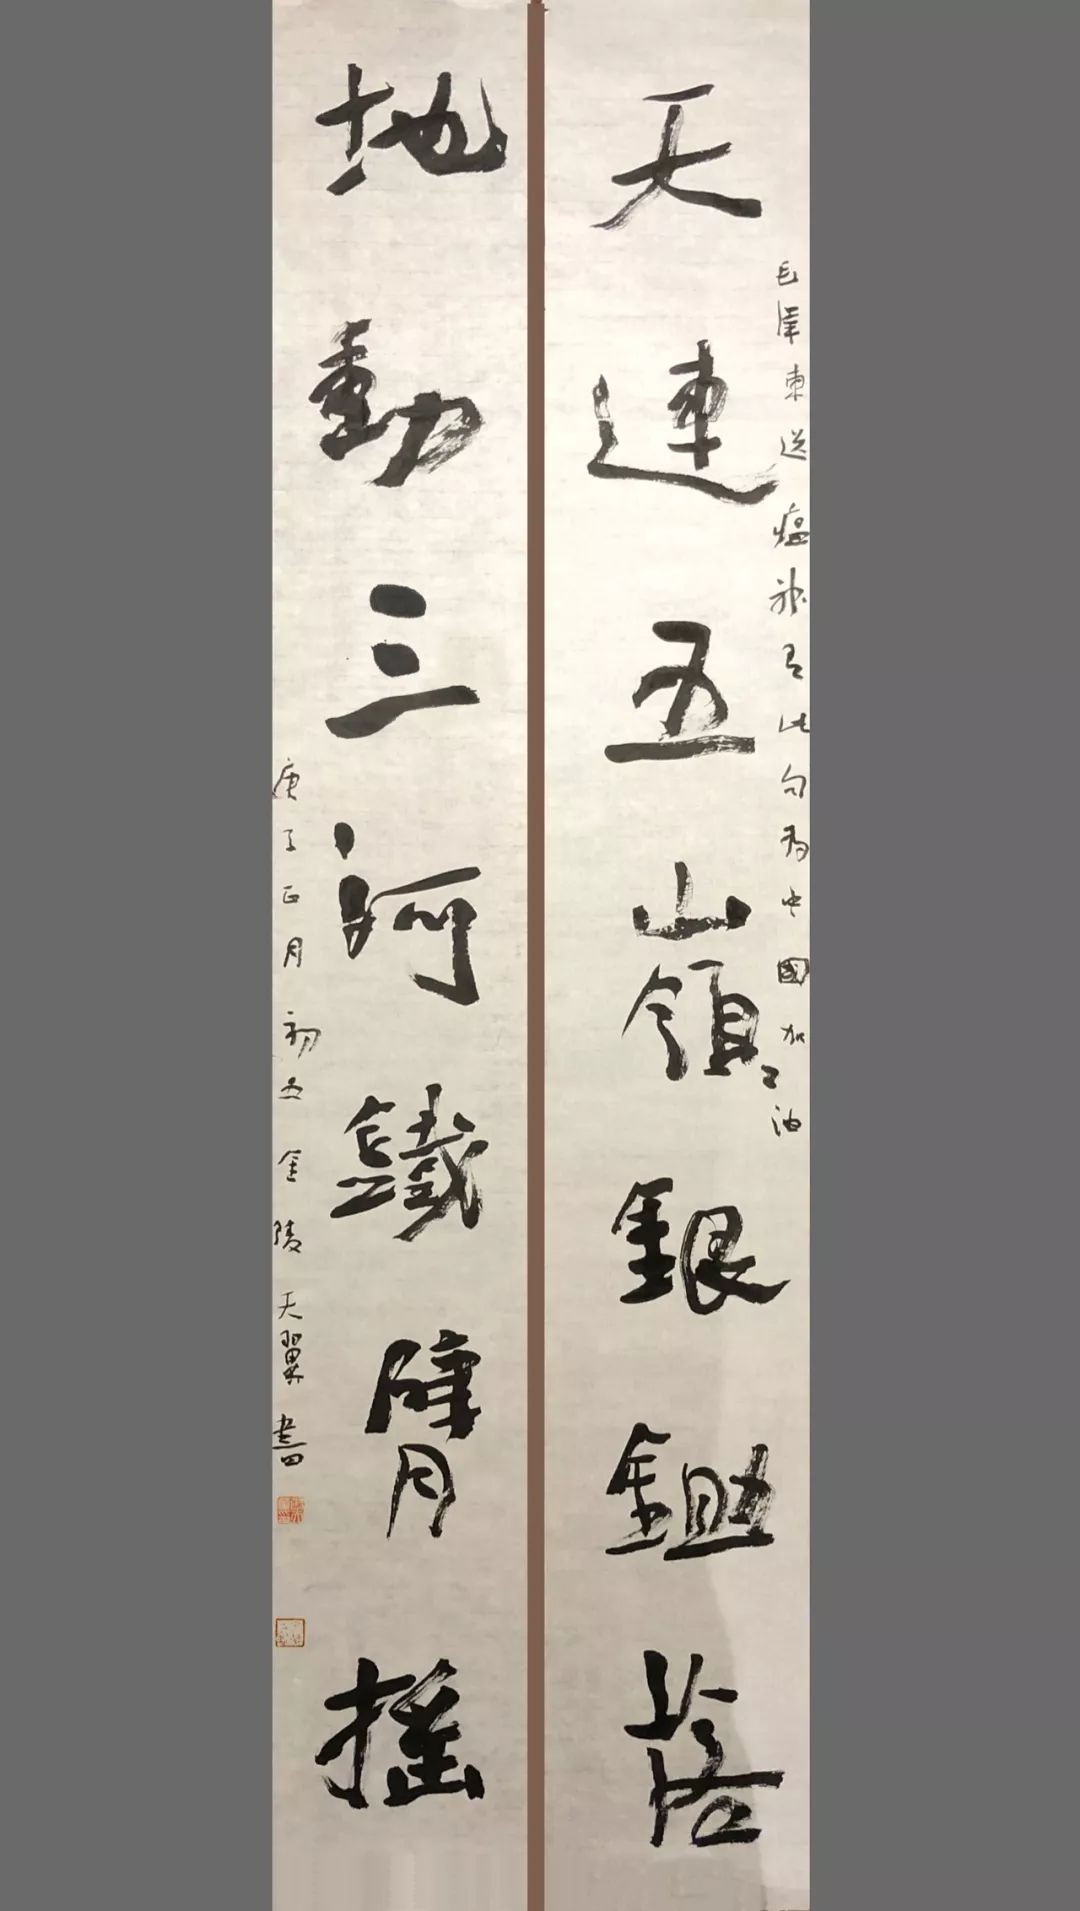 天連五嶺銀鋤落
毛澤東送瘟神有此句為中國加ミ油
地動三河鐵臂搖
庚子正月初五金陵天翼書